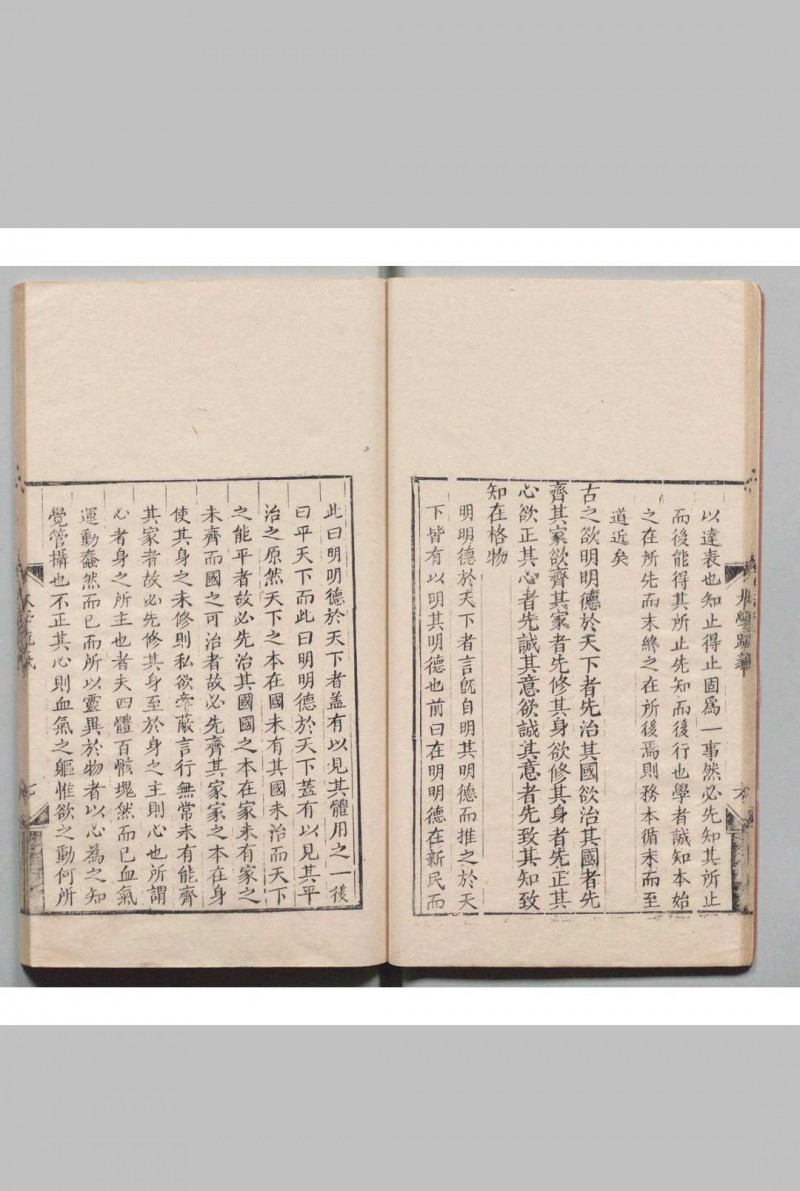 以達表也知止得止固爲一事然必先知其所止
而後能得其所止先知而後行也學者誠知本始
之在所先而末終之在所後焉則務本循末而至
道近矣
古之欲明明德於天下者先治其國欲治其國者先
齊其家欲齊其家者先修其身欲修其身者先正其
心欲正其心者先誠其意欲誠其意者先致其知致
知在格物
明明德於天下者言旣自明其明德而推之於天
下皆有以明其明德也前曰在明明德在新民而
此曰明明德於天下者蓋有以見其體用之一後
曰平天下而此曰明明德於天下蓋有以見其平
治之原然天下之本在國未有其國未治而天下
之能平者故必先治其國國之本在家未有家之
未齊而國之可治者故必先齊其家家之本在身
使其身之未修則私欲牽蔽言行無常未有能齊
其家者故必先修其身至於身之主則心也所謂
心者身之所主也者夫四體百骸塊然而已血氣
運動蠢然而已而所以靈異於物者以心為之知
覺管攝也不正其心則血氣之軀惟欲之動何所